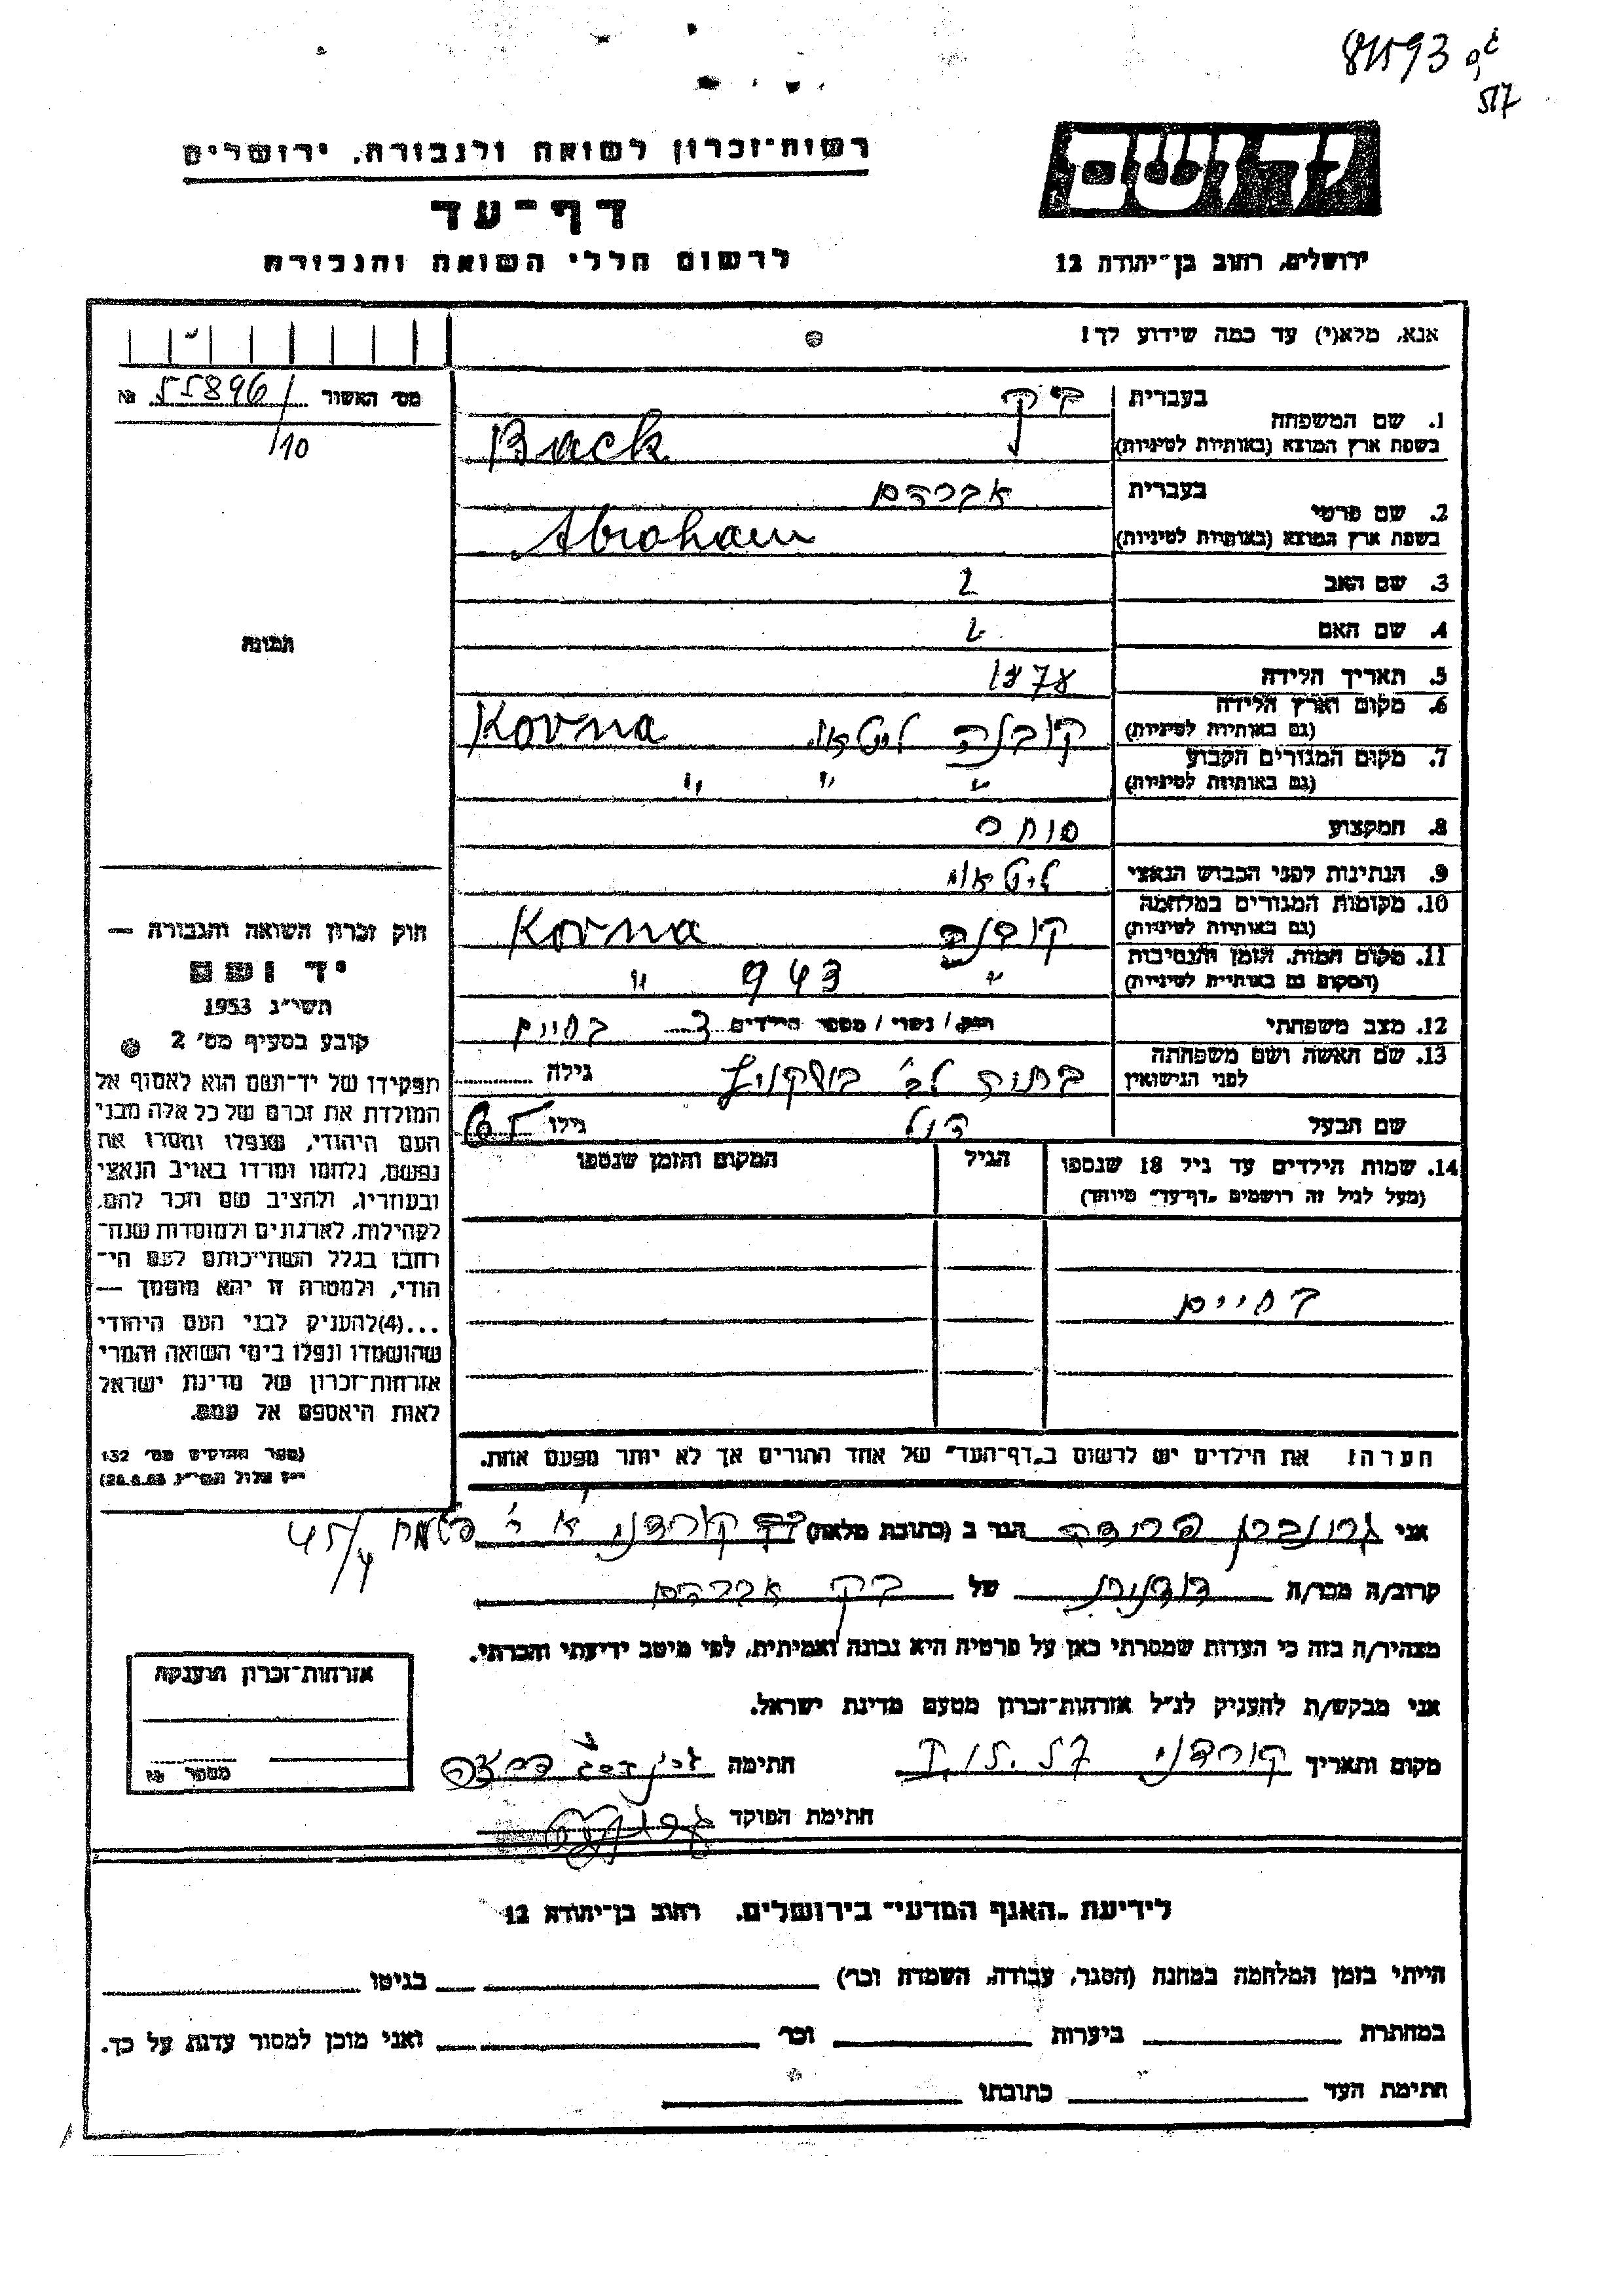 81593
517
רשות־זכרון לשואה ולגבורה, ירושלים
דף־עד
לרשום חללי השואה והגבורה
יד ושם
ירושלים, רחוב בן־יהודה 12
אנא, מלא(י) עד כמה שידוע לך!
מס׳ האשור 55896 №
/10
תמונה
חוק זכרון השואה והגבורה —
יד ושם
תשי״ג 1953
קובע בסעיף מס׳ 2
תפקידו של יד־ושם הוא לאסוף אל
המולדת את זכרם של כל אלה מבני
העם היהודי, שנפלו ומסרו את
נפשם, נלחמו ומרדו באויב הנאצי
ובעוזריו, ולהציב שם וזכר להם,
לקהילות, לארגונים ולמוסדות שנח־
רבו בגלל השתייכותם לעם הי־
הודי, ולמטרה זו יהא מוסמך —
...(4) להעניק לבני העם היהודי
שהושמדו ונפלו בימי השואה והמרי
אזרחות־זכרון של מדינת ישראל
לאות היאספם אל עמם.
(ספר החוקים מס׳ 132
י״ז אלול תשי״ג, 28.8.53)
1. שם המשפחה בעברית בק
בשפת ארץ המוצא (באותיות לטיניות) Back
2. שם פרטי בעברית אברהם
בשפת ארץ המוצא (באותיות לטיניות) Abraham
3. שם האב
4. שם האם
5. תאריך הלידה 1878
6. מקום וארץ הלידה (גם באותיות לטיניות) קובנה ליטא Kovna
7. מקום המגורים הקבוע (גם באותיות לטיניות) " " "
8. המקצוע סוחר
9. הנתינות לפני הכבוש הנאצי ליטאי
10. מקומות המגורים במלחמה (גם באותיות לטיניות) קובנה Kovna
11. מקום המות, הזמן והנסיבות (המקום גם באותיות לטיניות) " 943 "
12. מצב משפחתי רווק / נשוי / מספר הילדים 3 בחיים
13. שם האשה ושם משפחתה לפני הנישואין גילה
שם הבעל גילו 65
14. שמות הילדים עד גיל 18 שנספו הגיל המקום והזמן שנספו
(מעל לגיל זה רושמים „דף־עד” מיוחד)
בחיים
הערה! את הילדים יש לרשום ב„דף־העד” של אחד ההורים אך לא יותר מפעם אחת.
אני גרונברג פרידה הגר ב (כתובת מלאה) קורדני א׳ 45/4
קרוב/ה מכר/ה דודנית של בק אברהם
מצהיר/ה בזה כי העדות שמסרתי כאן על פרטיה היא נכונה ואמיתית, לפי מיטב ידיעתי והכרתי.
אני מבקש/ת להעניק לנ״ל אזרחות־זכרון מטעם מדינת ישראל.
מקום ותאריך קורדני חתימה
חתימת הפוקד
אזרחות־זכרון הוענקה
מספר
לידיעת „האגף המדעי” בירושלים, רחוב בן־יהודה 12
הייתי בזמן המלחמה במחנה (הסגר, עבודה, השמדה וכר׳) בגיטו
במחתרת ביערות וכר׳ ואני מוכן למסור עדות על כך.
חתימת העד כתובתו